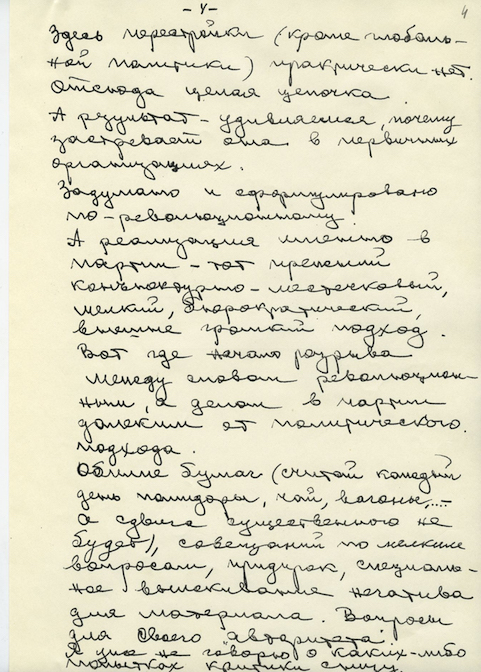 - 4 -
4
Здесь перестройки (кроме глобаль-
ной политики) практически нет.
Отсюда целая цепочка.
А результат - удивляемся, почему
застревает она в первичных
организациях.
Задумано и сформулировано
по-революционному.
А реализация именно в
партии - тот прежний
конъюнктурно-местечковый,
мелкий, бюрократический,
внешне громкий подход.
Вот где начало разрыва
между словом революцион-
ным, а делом в партии
далеким от политического
подхода.
Обилие бумаг (считай каждый
день помидоры, чай, вагоны,...-
а сдвига существенного не
будет), совещаний по мелким
вопросам, придирок, специаль-
ное выискивание негатива
для материала. Вопросы
для своего "авторитета".
Я уже не говорю о каких-либо
попытках критики снизу.